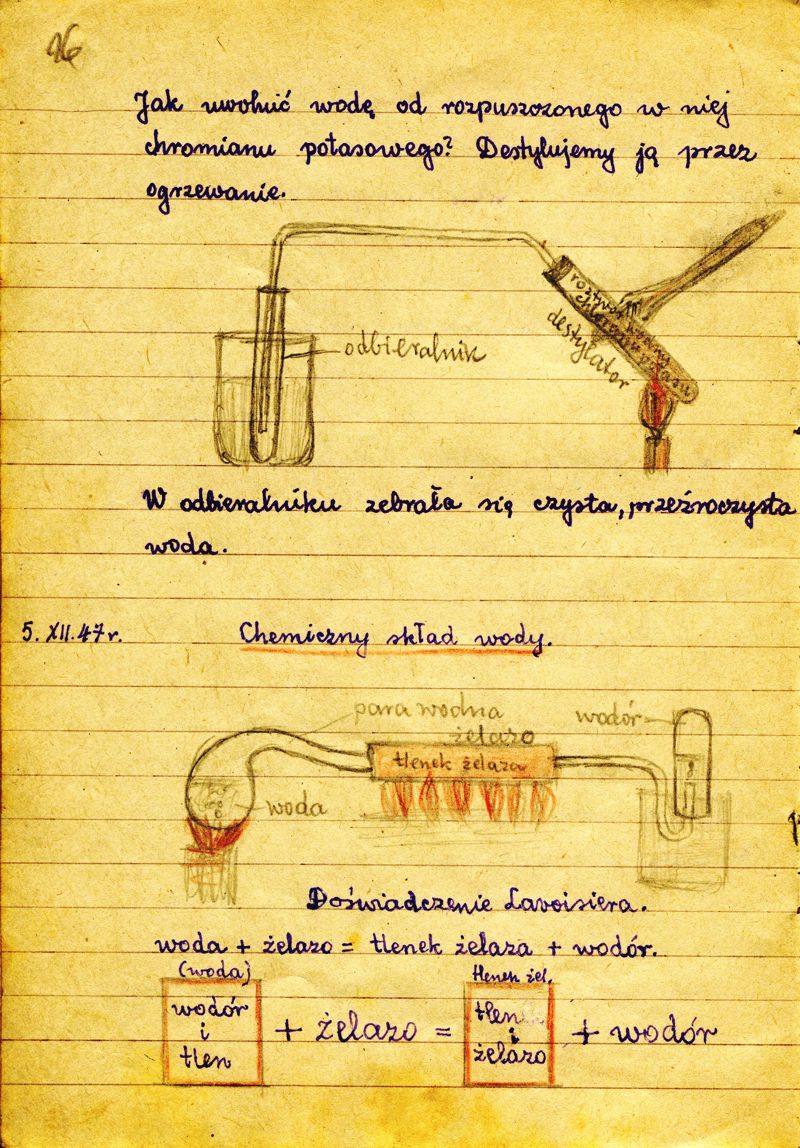 16
Jak uwolnić wodę od rozpuszczonego w niej
chromianu potasowego? Destylujemy ją przez
ogrzewanie.
odbieralnik
roztwór wodny
destylator
W odbieralniku zebrała się czysta, przeźroczysta
woda.
5. XII. 47 r.
Chemiczny skład wody.
para wodna
wodór
żelazo
tlenek żelaza
woda
Doświadczenie Lavoisiera.
woda + żelazo = tlenek żelaza + wodór.
(woda)
tlenek żel.
wodór i tlen + żelazo = tlen i żelazo + wodór